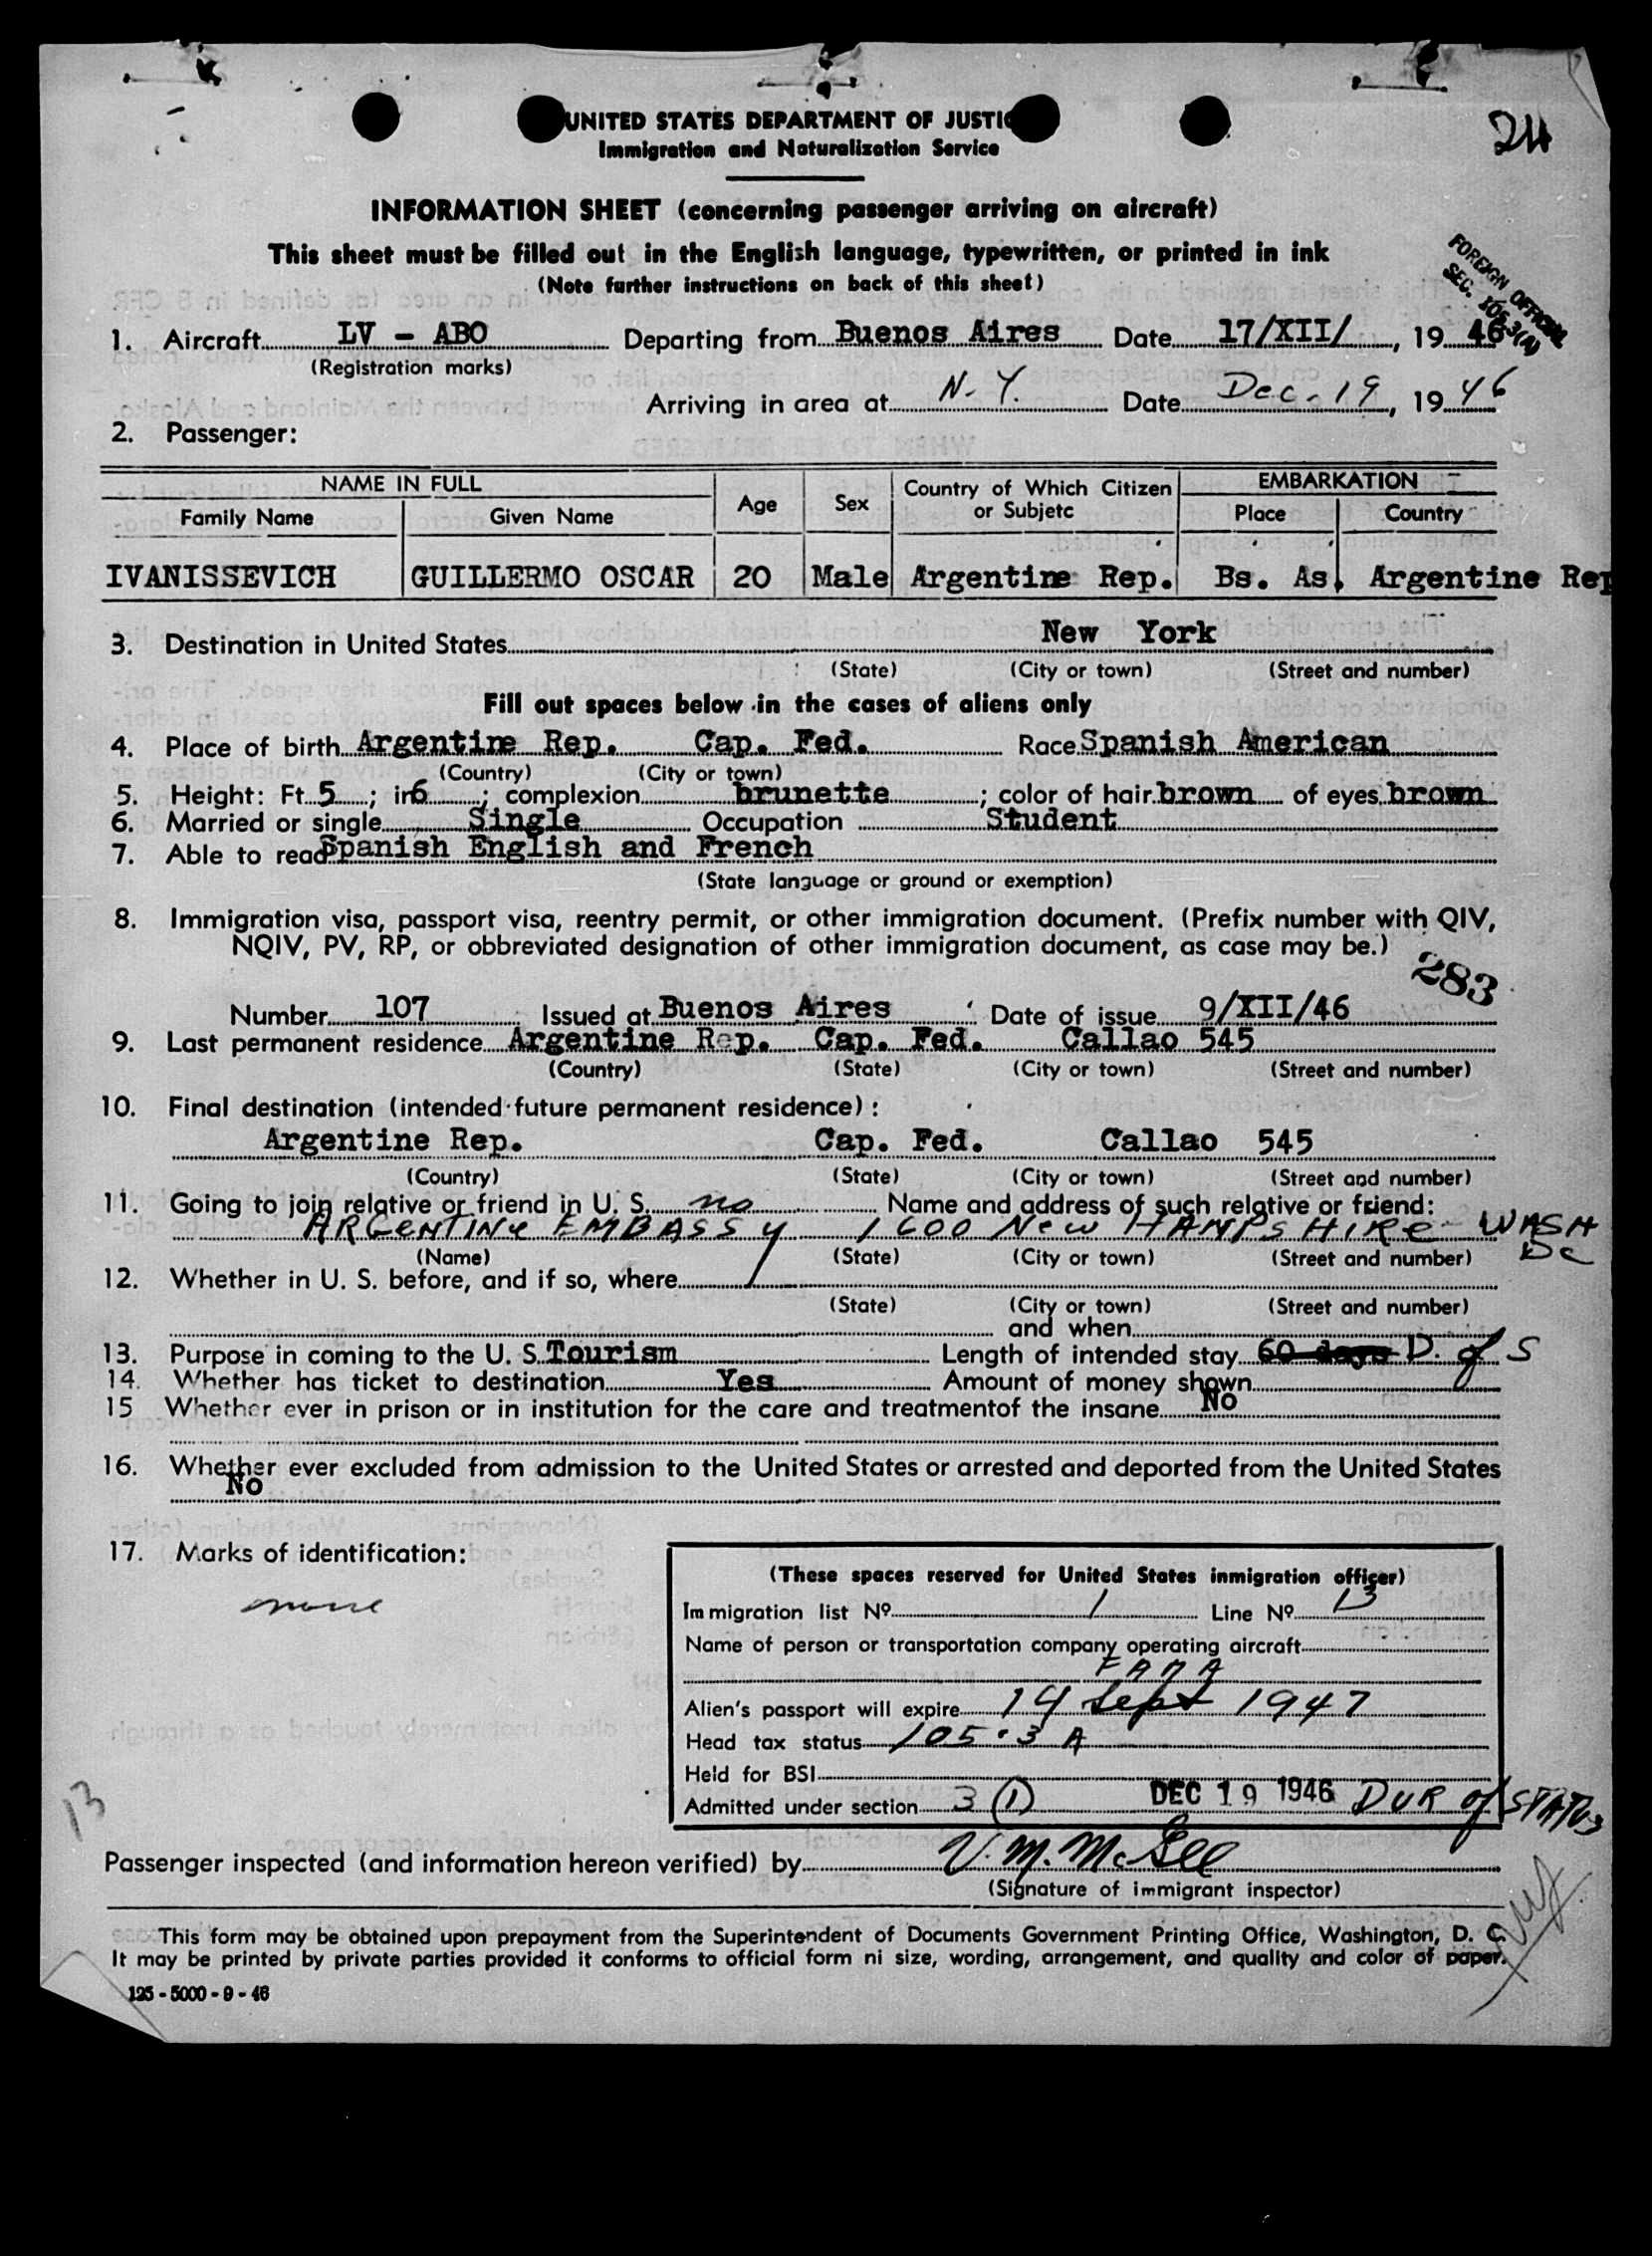 24
UNITED STATES DEPARTMENT OF JUSTIC
Immigration and Naturalization Service
INFORMATION SHEET (concerning passenger arriving on aircraft)
This sheet must be filled out in the English language, typewritten, or printed in ink
(Note further instructions on back of this sheet)
FOREIGN OFFICIAL
SEC. 105.3(A)
1. Aircraft LV - ABO Departing from Buenos Aires Date 17/XII/, 19 46
(Registration marks)
Arriving in area at N.Y. Date Dec. 19, 19 46
2. Passenger:
NAME IN FULL Age Sex Country of Which Citizen or Subjetc EMBARKATION
Family Name Given Name Place Country
IVANISSEVICH GUILLERMO OSCAR 20 Male Argentine Rep. Bs. As. Argentine Rep
3. Destination in United States New York
(State) (City or town) (Street and number)
Fill out spaces below in the cases of aliens only
4. Place of birth Argentine Rep. Cap. Fed. Race Spanish American
(Country) (City or town)
5. Height: Ft. 5; in 6; complexion brunette; color of hair brown of eyes brown
6. Married or single Single Occupation Student
7. Able to read Spanish English and French
(State language or ground or exemption)
8. Immigration visa, passport visa, reentry permit, or other immigration document. (Prefix number with QIV,
NQIV, PV, RP, or obbreviated designation of other immigration document, as case may be.)
283
Number 107 Issued at Buenos Aires Date of issue 9/XII/46
9. Last permanent residence Argentine Rep. Cap. Fed. Callao 545
(Country) (State) (City or town) (Street and number)
10. Final destination (intended future permanent residece):
Argentine Rep. Cap. Fed. Callao 545
(Country) (State) (City or town) (Street and number)
11. Going to join relative or friend in U. S. no Name and address of such relative or friend:
ARGENTINE EMBASSY 1600 New HAMPSHIRE WASH DC
(Name) (State) (City or town) (Street and number)
12. Whether in U. S. before, and if so, where
(State) (City or town) (Street and number)
and when
13. Purpose in coming to the U. S. Tourism Length of intended stay 60 days D. of S
14. Whether has ticket to destination Yes Amount of money shown
15 Whether ever in prison or in institution for the care and treatmentof the insane No
16. Whether ever excluded from admission to the United States or arrested and deported from the United States
No
17. Marks of identification:
none
(These spaces reserved for United States inmigration officer)
Immigration list Nº 1 Line Nº 13
Name of person or transportation company operating aircraft
FAMA
Alien's passport will expire 14 Sept 1947
Head tax status 105.3 A
Held for BSI
Admitted under section 3 (1) DEC 19 1946 DUR of STATUS
13
Passenger inspected (and information hereon verified) by V. M. McGee
(Signature of immigrant inspector)
This form may be obtained upon prepayment from the Superintendent of Documents Government Printing Office, Washington, D. C.
It may be printed by private parties provided it conforms to official form ni size, wording, arrangement, and quality and color of paper.
125 - 5000 - 9 - 46